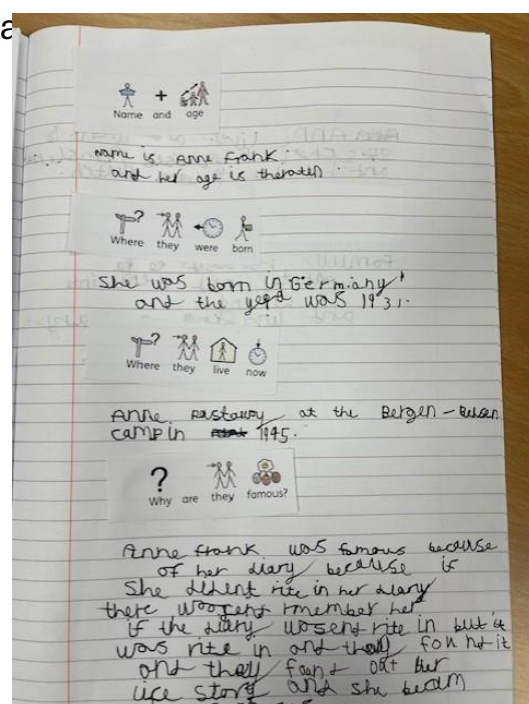 a
Name and age
Name is Anne Frank.
and her age is theraten.
Where they were born
She was born in Germiany
and the year was 1931.
Where they live now
Anne at the Bergen-Belsen
camp in 1945.
?
Why are they famous?
Anne frank was famous because
of her diary because if
she dident rite in her diary
there woosent rmember her
if the diary wosent rite in but it
was rite in and thay found it
and thay found out her
life story and she becam